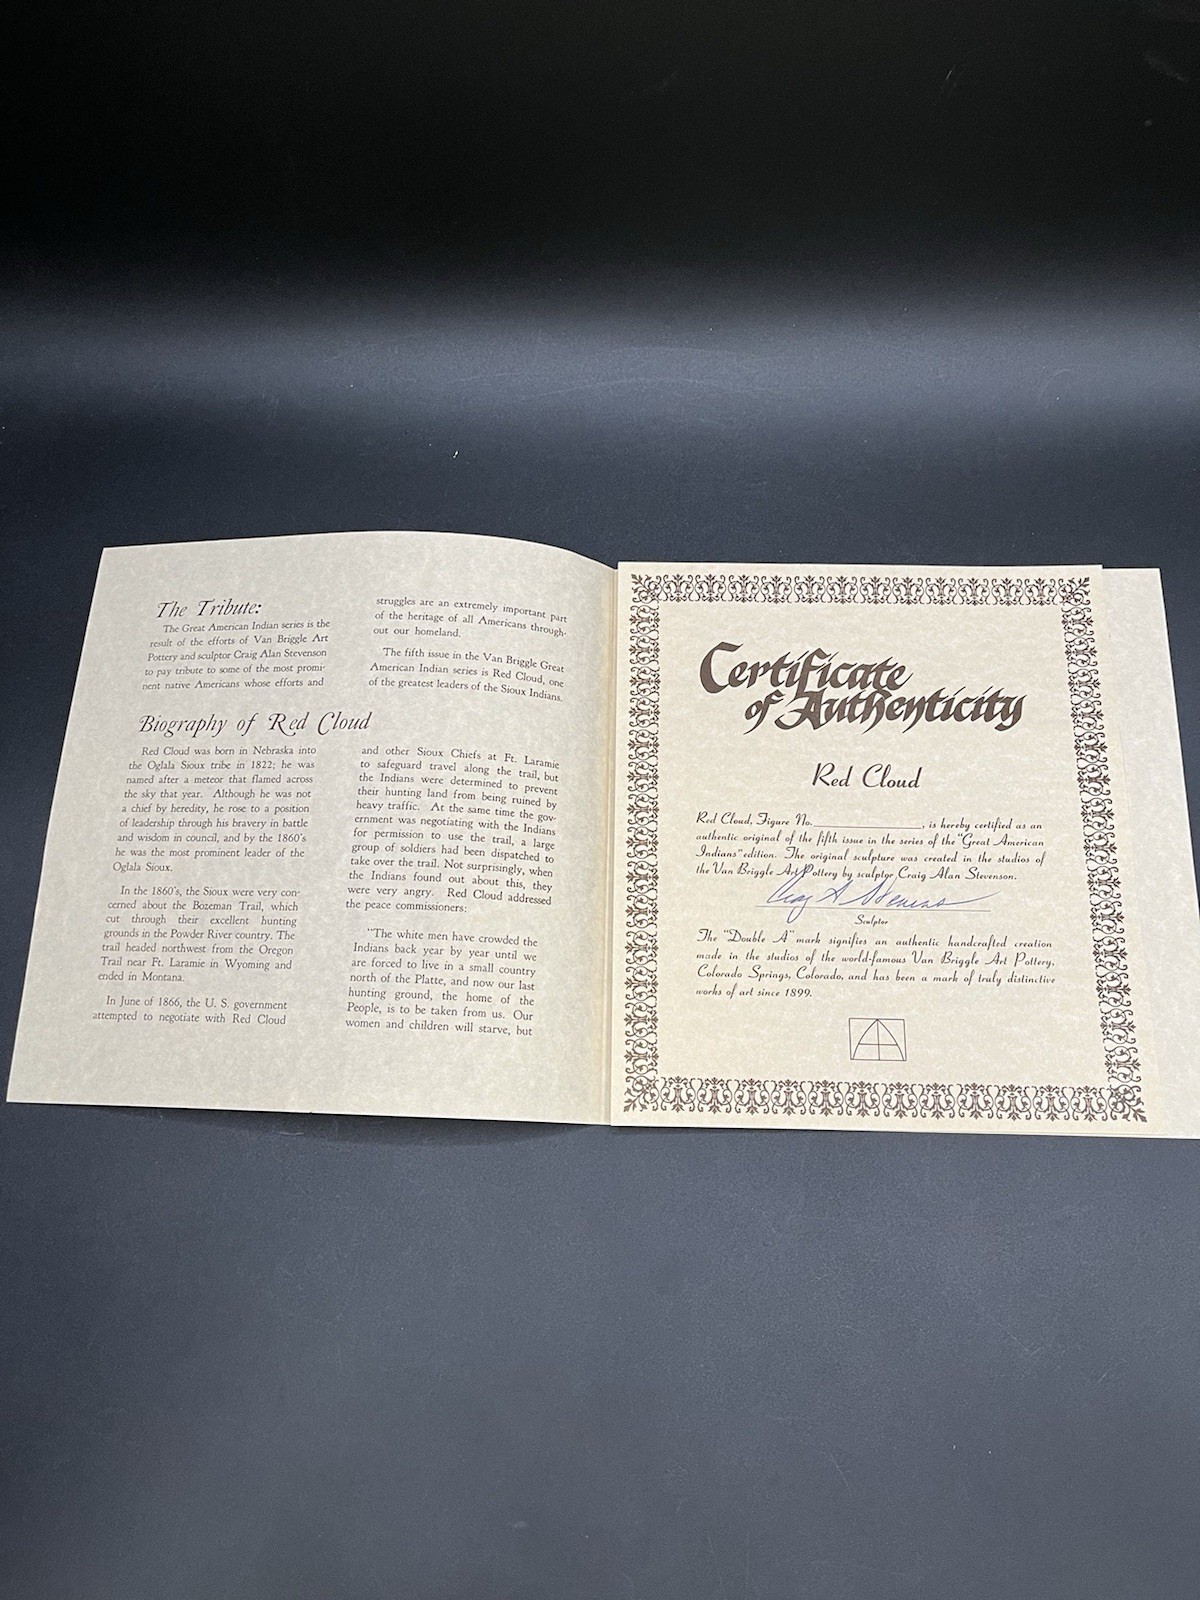 The Tribute:
The Great American Indian series is the
result of the efforts of Van Briggle Art
Pottery and sculptor Craig Alan Stevenson
to pay tribute to some of the most promi-
nent native Americans whose efforts and
struggles are an extremely important part
of the heritage of all Americans through-
out our homeland.
The fifth issue in the Van Briggle Great
American Indian series is Red Cloud, one
of the greatest leaders of the Sioux Indians.
Biography of Red Cloud
Red Cloud was born in Nebraska into
the Oglala Sioux tribe in 1822; he was
named after a meteor that flamed across
the sky that year. Although he was not
a chief by heredity, he rose to a position
of leadership through his bravery in battle
and wisdom in council, and by the 1860's
he was the most prominent leader of the
Oglala Sioux.
In the 1860's, the Sioux were very con-
cerned about the Bozeman Trail, which
cut through their excellent hunting
grounds in the Powder River country. The
trail headed northwest from the Oregon
Trail near Ft. Laramie in Wyoming and
ended in Montana.
In June of 1866, the U. S. government
attempted to negotiate with Red Cloud
and other Sioux Chiefs at Ft. Laramie
to safeguard travel along the trail, but
the Indians were determined to prevent
their hunting land from being ruined by
heavy traffic. At the same time the gov-
ernment was negotiating with the Indians
for permission to use the trail, a large
group of soldiers had been dispatched to
take over the trail. Not surprisingly, when
the Indians found out about this, they
were very angry. Red Cloud addressed
the peace commissioners:
"The white men have crowded the
Indians back year by year until we
are forced to live in a small country
north of the Platte, and now our last
hunting ground, the home of the
People, is to be taken from us. Our
women and children will starve, but
Certificate
of Authenticity
Red Cloud
Red Cloud, Figure No.____________, is hereby certified as an
authentic original of the fifth issue in the series of the "Great American
Indians" edition. The original sculpture was created in the studios of
the Van Briggle Art Pottery by sculptor Craig Alan Stevenson.
Craig A Stevenson
Sculptor
The "Double A" mark signifies an authentic handcrafted creation
made in the studios of the world-famous Van Briggle Art Pottery,
Colorado Springs, Colorado, and has been a mark of truly distinctive
works of art since 1899.